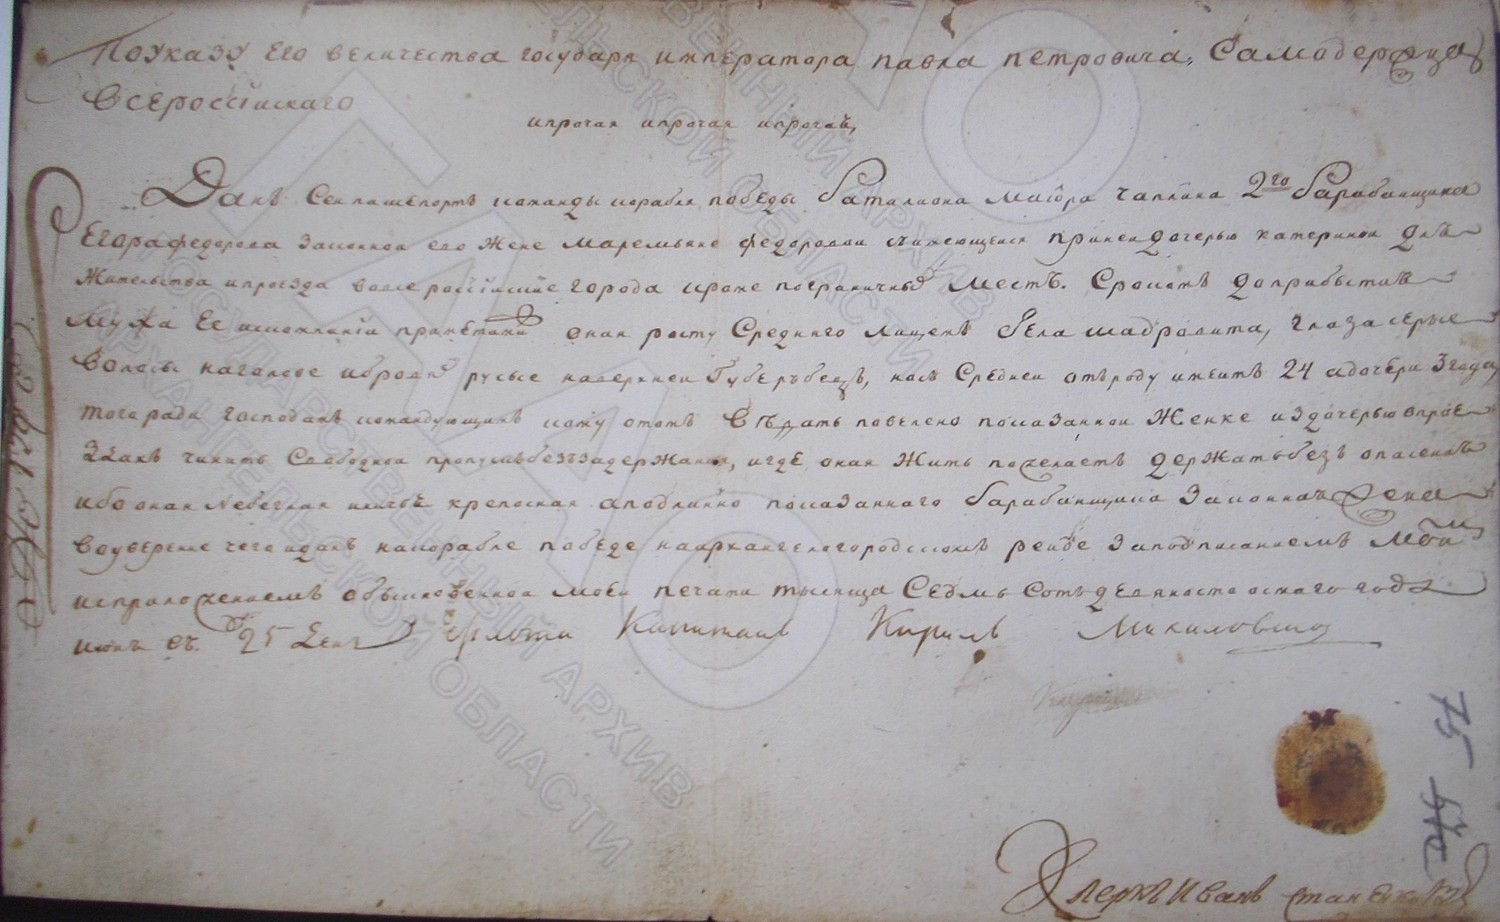 По указу Его величества государя императора павла петровича, Самодержца
Всероссiискаго
ипрочая ипрочая ипрочая,
Данъ Сеи пашепортъ команды корабля победы баталиона Маiора чаплина 2го барабанщика
Егора федорова законнои его Жене Маремьяне федоровои съимеющеися принеи дочерью катеринои для
Жительства ипроезда вовсе россiиские города кроме пограничныхъ Местъ. Срокомъ доприбытия
Мужа Ее искомпании приметами оная росту Средняго лицемъ бела шадровита, глаза серые
Волосы наголове иброви русые наверхнеи губе рубецъ, носъ Среднеи отъроду имеитъ 24 адочери 3 года,
того ради господамъ командующимъ кому отомъ ведать повелено показаннои Женке издочерью впрое
здахъ чинить Свободнои пропускъ беззадержания, игде оная Жить пожелаетъ держать безъ опасения
ибо оная небеглая иничья крепосная аподлинно показаннаго барабанщика Законная Жена
воуверение чего идань накорабле победе наархангелогородскомъ реиде Заподписаниемъ Моимъ
исприложениемъ обыкновеннои моеи печати тысяща Седмь Сотъ девяносто осмаго года
июня въ 25 день
флота Капитанъ Кирилъ Михаиловский
75
Клеркъ Иванъ
ГАО
ГОСУДАРСТВЕННЫЙ АРХИВ
АРХАНГЕЛЬСКОЙ ОБЛАСТИ